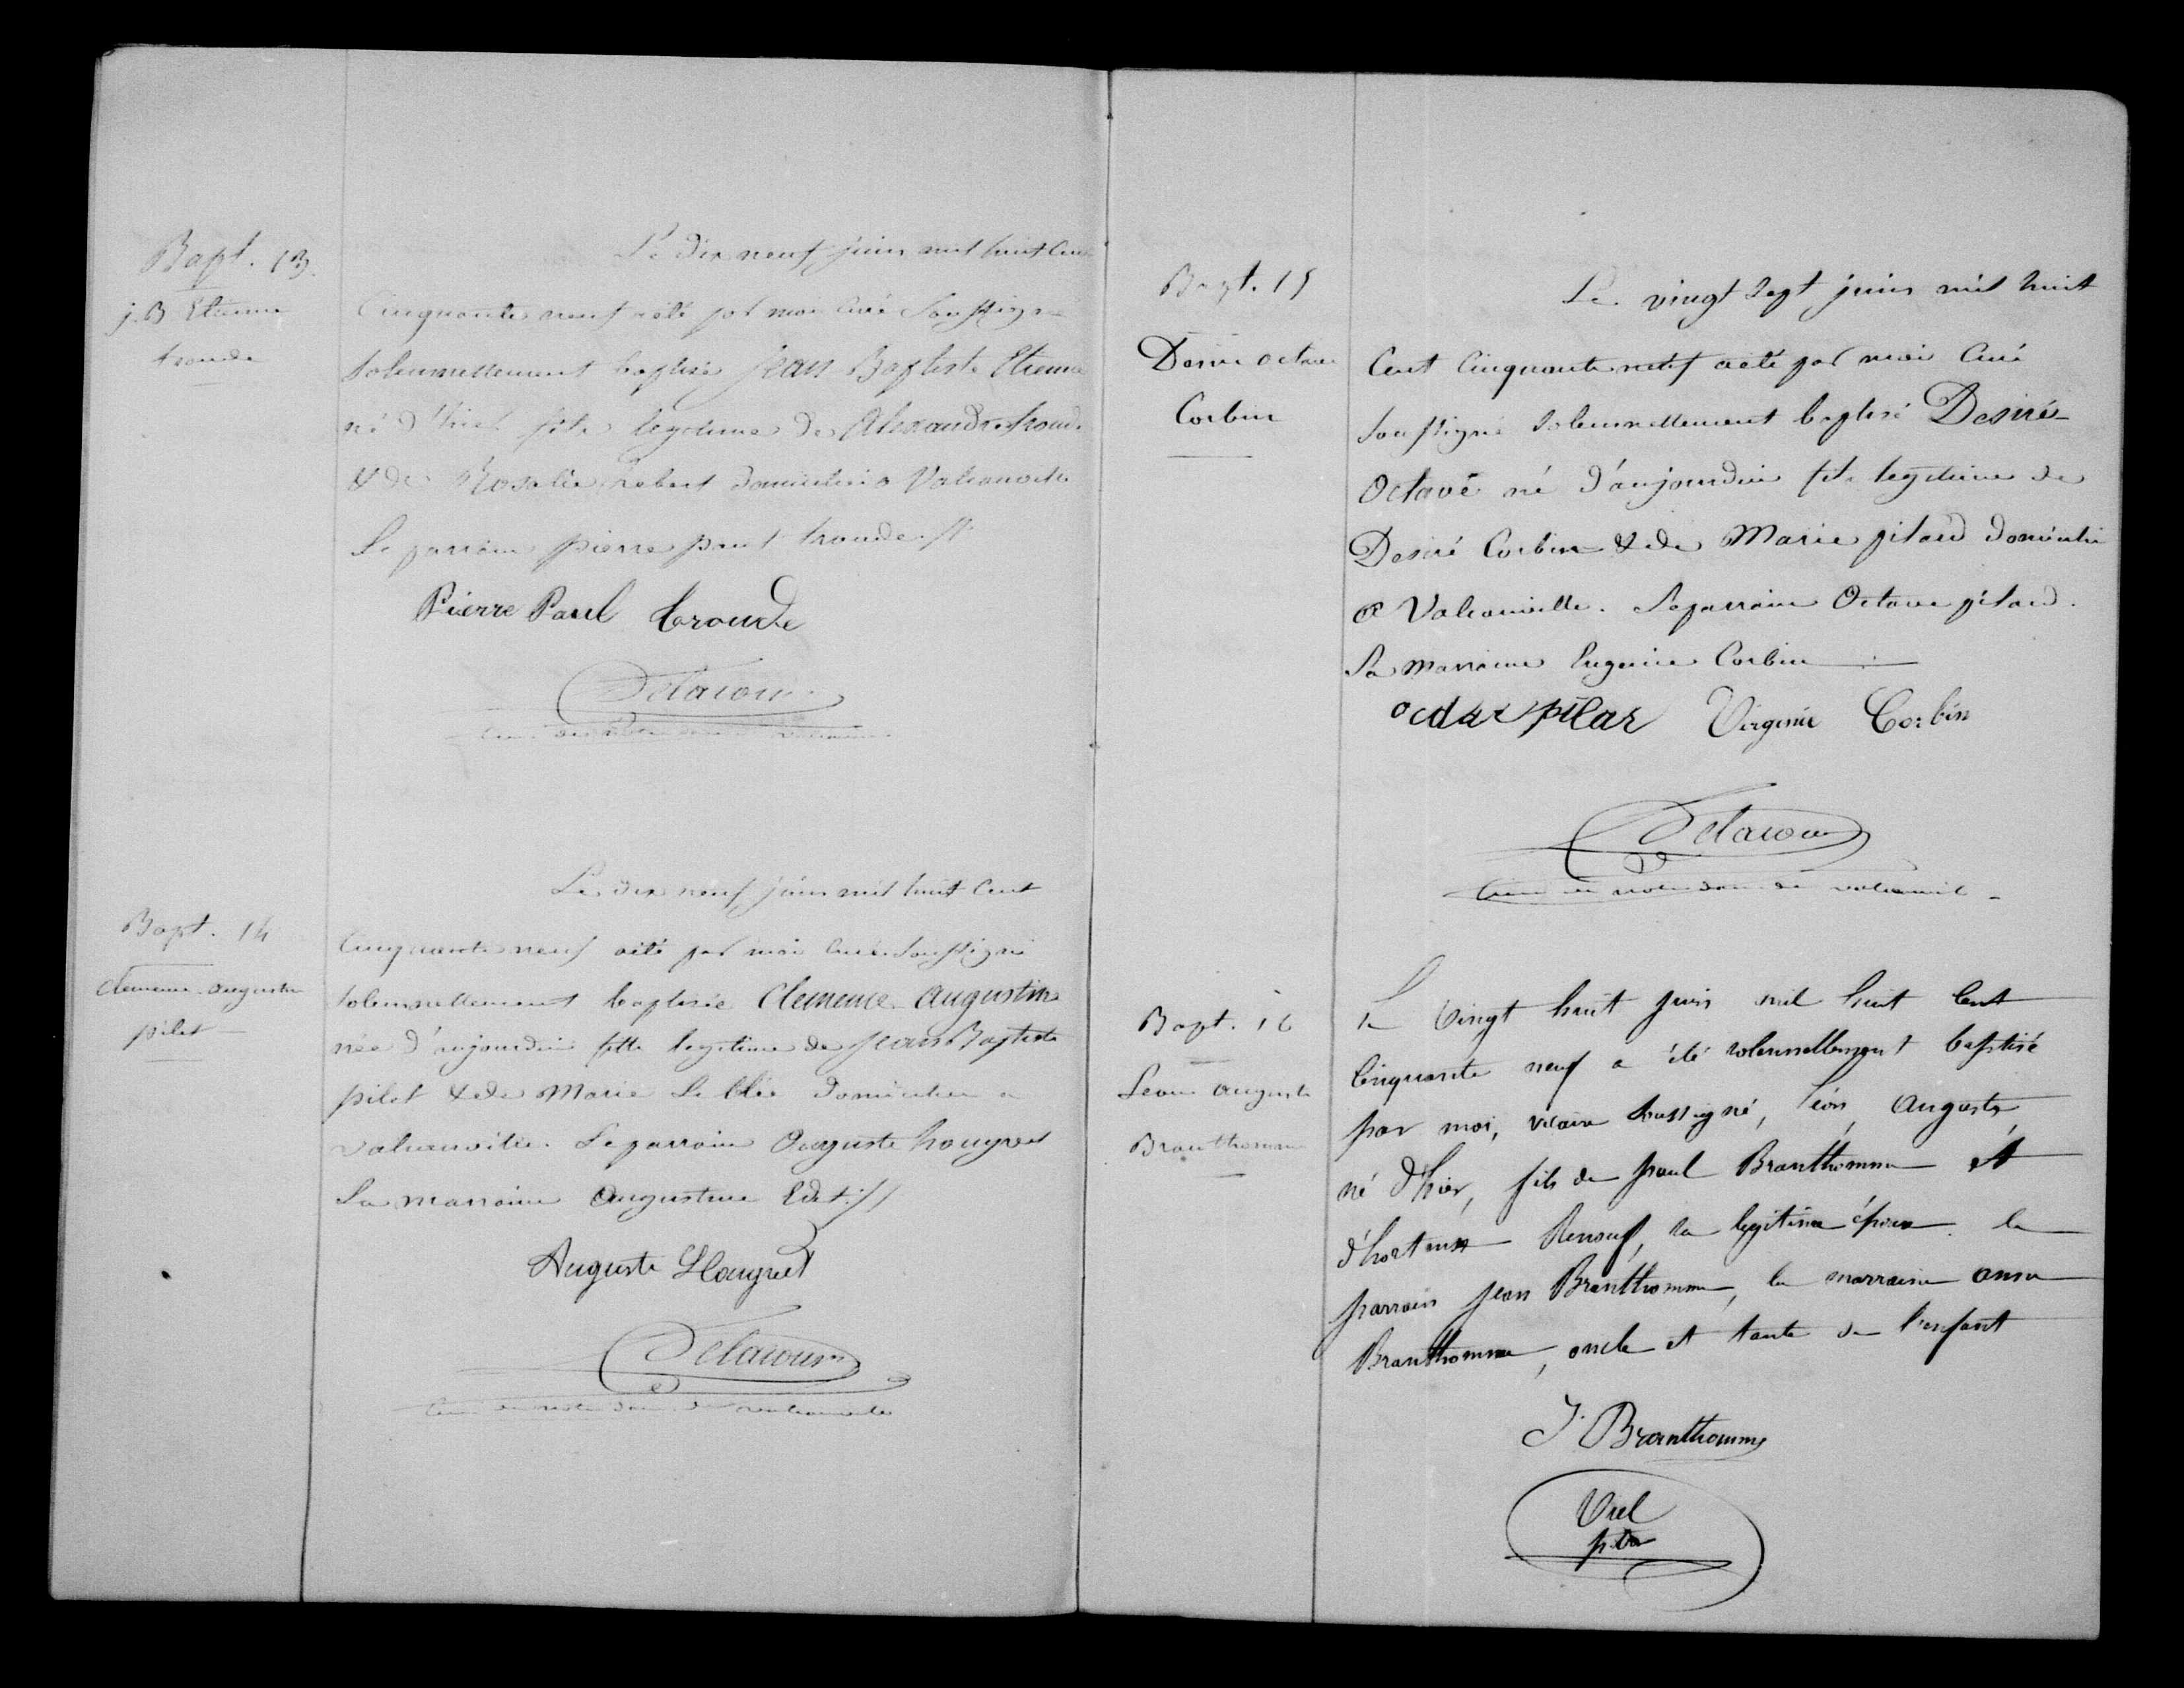 Bapt. 13
j. B Etienne
troude
Le dix neuf juin mil huit cent
Cinquante neuf a été par moi Curé Soussigné
Solennellement baptisé Jean Baptiste Etienne
né d'hier fils legitime de Alexandre troude
& de Rosalie robert domicilié a Valcanville
Le parrain pierre paul troude.
Pierre Paul troude
Delacour
Curé de Notre dame de Valcanville
Bapt. 14
Clemence augustine
pilet
Le dix neuf juin mil huit Cent
Cinquante neuf a été par moi Curé Soussigné
Solennellement baptisée Clemence Augustine
née d'aujourdui fille legitime de Jean Baptiste
pilet & de Marie domicilié a
valcanville. Le parrain Auguste hougret
La marraine Augustine
Auguste Hougret
Delacour
Curé de notre dame de valcanville
Bapt. 15
Desiré octave
Corbin
Le vingt Sept juin mil huit
Cent Cinquante neuf a été par moi Curé
Soussigné Solennellement baptisé Desiré
Octave né d'aujourdui fils legitime de
Desiré Corbin & de Marie pilard domicilié
a Valcanville. Le parrain Octave pilard.
La marraine Corbin
pilar Virginie Corbin
Delacour
Curé de notre dame de valcanville
Bapt. 16
Leon auguste
Branthomme
Le Vingt huit juin mil huit Cent
Cinquante neuf a été solennellement baptisé
par moi, vicaire soussigné, Léon, Auguste,
né d'hier, fils de paul Branthomme et
d'hortense Renouf, sa legitime épouse. le
parrain jean Branthomme, la marraine anna
Branthomme, oncle et tante de l'enfant
J. Branthomme
Viel
ptre